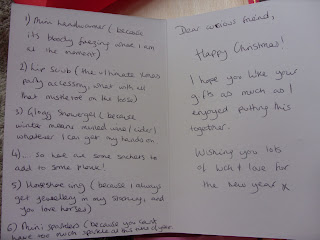 1) Mini handwarmer (because
its bloody freezing where I am
at the moment)
2) Lip Scrub (the ultimate xmas
party accessory, what with all
that mistletoe on the loose)
3) Glogg (because
winter means mulled wine/cider/
whatever I can get my hands on
4)... So here are some snickers to
add to some more!
5) Horseshoe ring (because I always
get jewellery in my stocking, and
you love horses)
6) Mini sparklers (because you can't
have too much sparkle at this time of year
Dear curious friend,
Happy Christmas!
I hope you like your
gifts as much as I
enjoyed putting this
together.
Wishing you lots
of luck & love for
the new year x